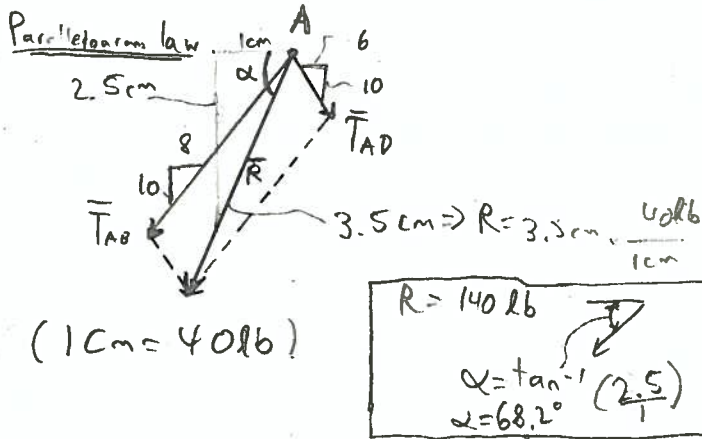 Parallelogram law
A
1cm
6
α
10
2.5cm
T̄AD
8
10
R̄
T̄AB
3.5cm ⇒ R = 3.5cm . 40lb
1cm
(1Cm = 40lb)
R = 140 lb
α = tan⁻¹ (2.5/1)
α = 68.2°